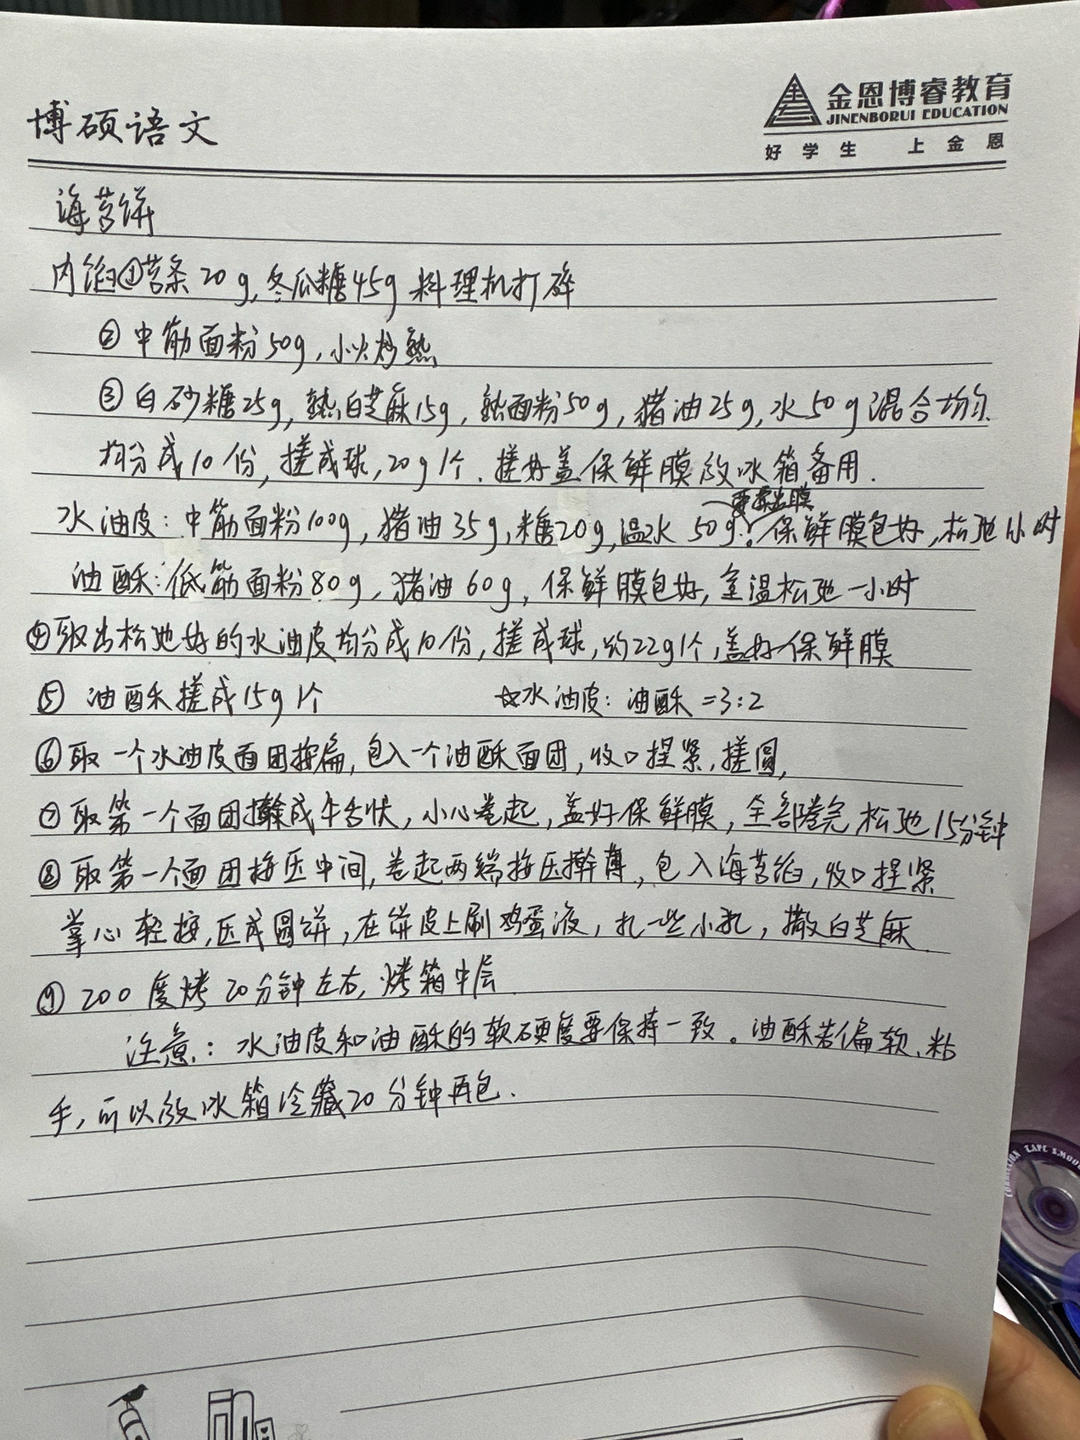 博硕语文
金恩博睿教育
JINENBORUI EDUCATION
好学生 上金恩
海苔饼
内馅①苔条20g,冬瓜糖45g 料理机打碎
②中筋面粉50g,小火炒熟
③白砂糖25g,熟白芝麻15g,熟面粉50g,猪油25g,水50g混合均匀
均分成10份,搓成球,20g1个.搓好盖保鲜膜放冰箱备用.
要柔出膜
水油皮:中筋面粉100g,猪油35g,糖20g,温水50g.保鲜膜包好,松弛1小时
油酥:低筋面粉80g,猪油60g,保鲜膜包好,室温松弛一小时
④取出松弛好的水油皮均分成10份,搓成球,约22g1个,盖好保鲜膜
⑤ 油酥搓成15g1个 ☆水油皮:油酥=3:2
⑥取一个水油皮面团按扁,包入一个油酥面团,收口捏紧,搓圆,
⑦取第一个面团擀成牛舌状,小心卷起,盖好保鲜膜,全部卷完松弛15分钟
⑧取第一个面团按压中间,卷起两端按压擀薄,包入海苔馅,收口捏紧
掌心轻按,压成圆饼,在饼皮上刷鸡蛋液,扎一些小孔,撒白芝麻
⑨200度烤20分钟左右,烤箱中层
注意:水油皮和油酥的软硬度要保持一致。油酥若偏软、粘
手,可以放冰箱冷藏20分钟再包.